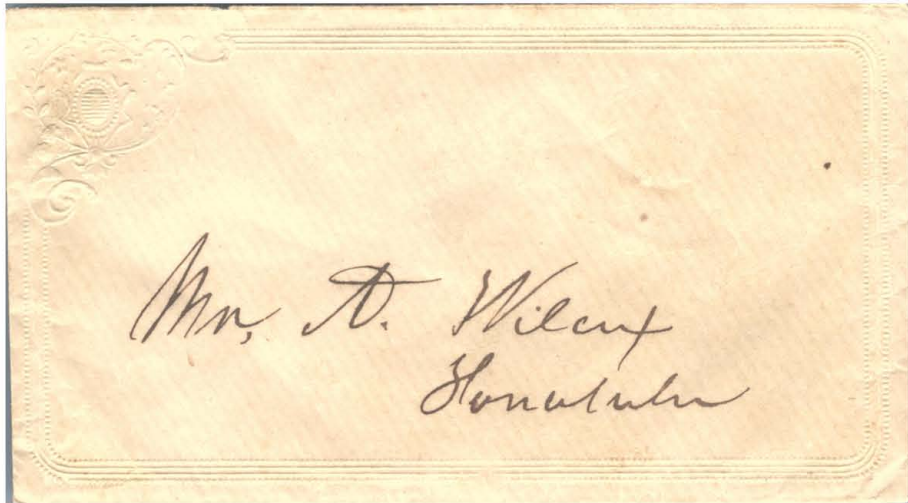 Mr, A. Wilcox
Honolulu